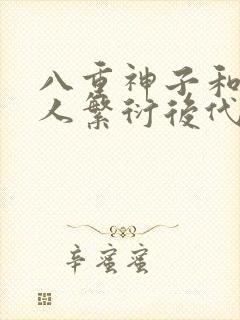 八重神子和
人繁衍後代
辛蜜蜜